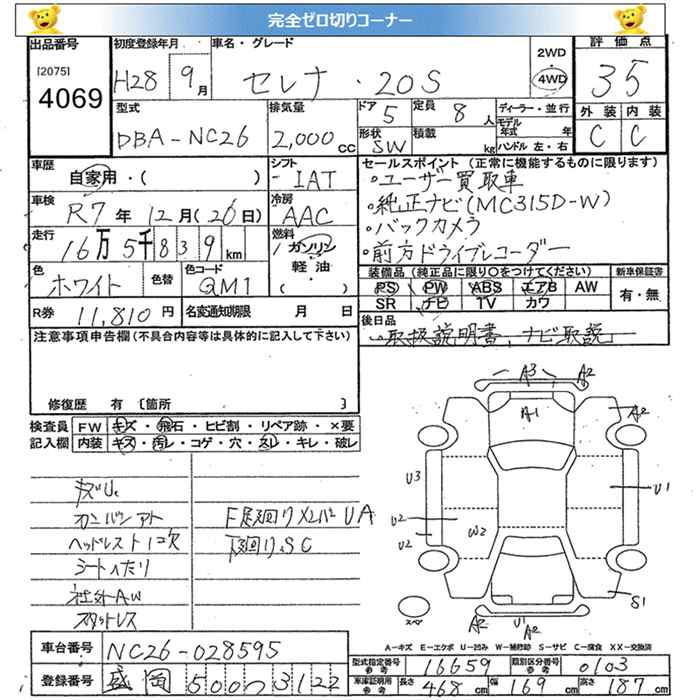 完全ゼロ切りコーナー
出品番号 初度登録年月 車名・グレード 2WD 評価点
[2075] 4069 H28年 9月 セレナ・20S 4WD 35
型式 排気量 ドア 5 定員 8人 ディーラー・並行 外装 内装
DBA-NC26 2,000cc 形状 SW 積載 kg モデル年式 年 ハンドル 左・右 C C
車歴 自家用・( ) シフト IAT セールスポイント (正常に機能するものに限ります)
・ユーザー買取車
車検 R7年12月(26日) 冷房 AAC ・純正ナビ(MC315D-W)
・バックカメラ
走行 16万5千839km 燃料 ガソリン ・前方ドライブレコーダー
軽油
・( )
色 ホワイト 色替 色コード QM1 装備品(純正品に限り○をつけてください) 新車保証書
PS PW ABS エアB AW 有・無
SR ナビ TV カワ
R券 11,810円 名変通知期限 月 日 後日品
取扱説明書、ナビ取説
注意事項申告欄(不具合内容等は具体的に記入して下さい)
修復歴 有 [箇所 ]
検査員記入欄 FW キズ・飛石・ヒビ割・リペア跡・×要
内装 キズ・汚レ・コゲ・穴・スレ・キレ・破レ
A3 A2
A1 A2
U3 U1
U2
U2 W2
S1
A2 U1 A2
スペア
キズU.
カンバンアト F足廻りメンバーUA
ヘッドレスト1欠 下廻り.SC
シートへたり
社外AW
スタットレス
A-キズ E-エクボ U-凹み W-補修跡 S-サビ C-腐食 XX-交換済
車台番号 NC26-028595 型式指定番号 参考 16659 類別区分番号 参考 0103
登録番号 盛岡 500 つ 3122 車庫証明用 参考 長さ 468cm 幅 169cm 高さ 187cm